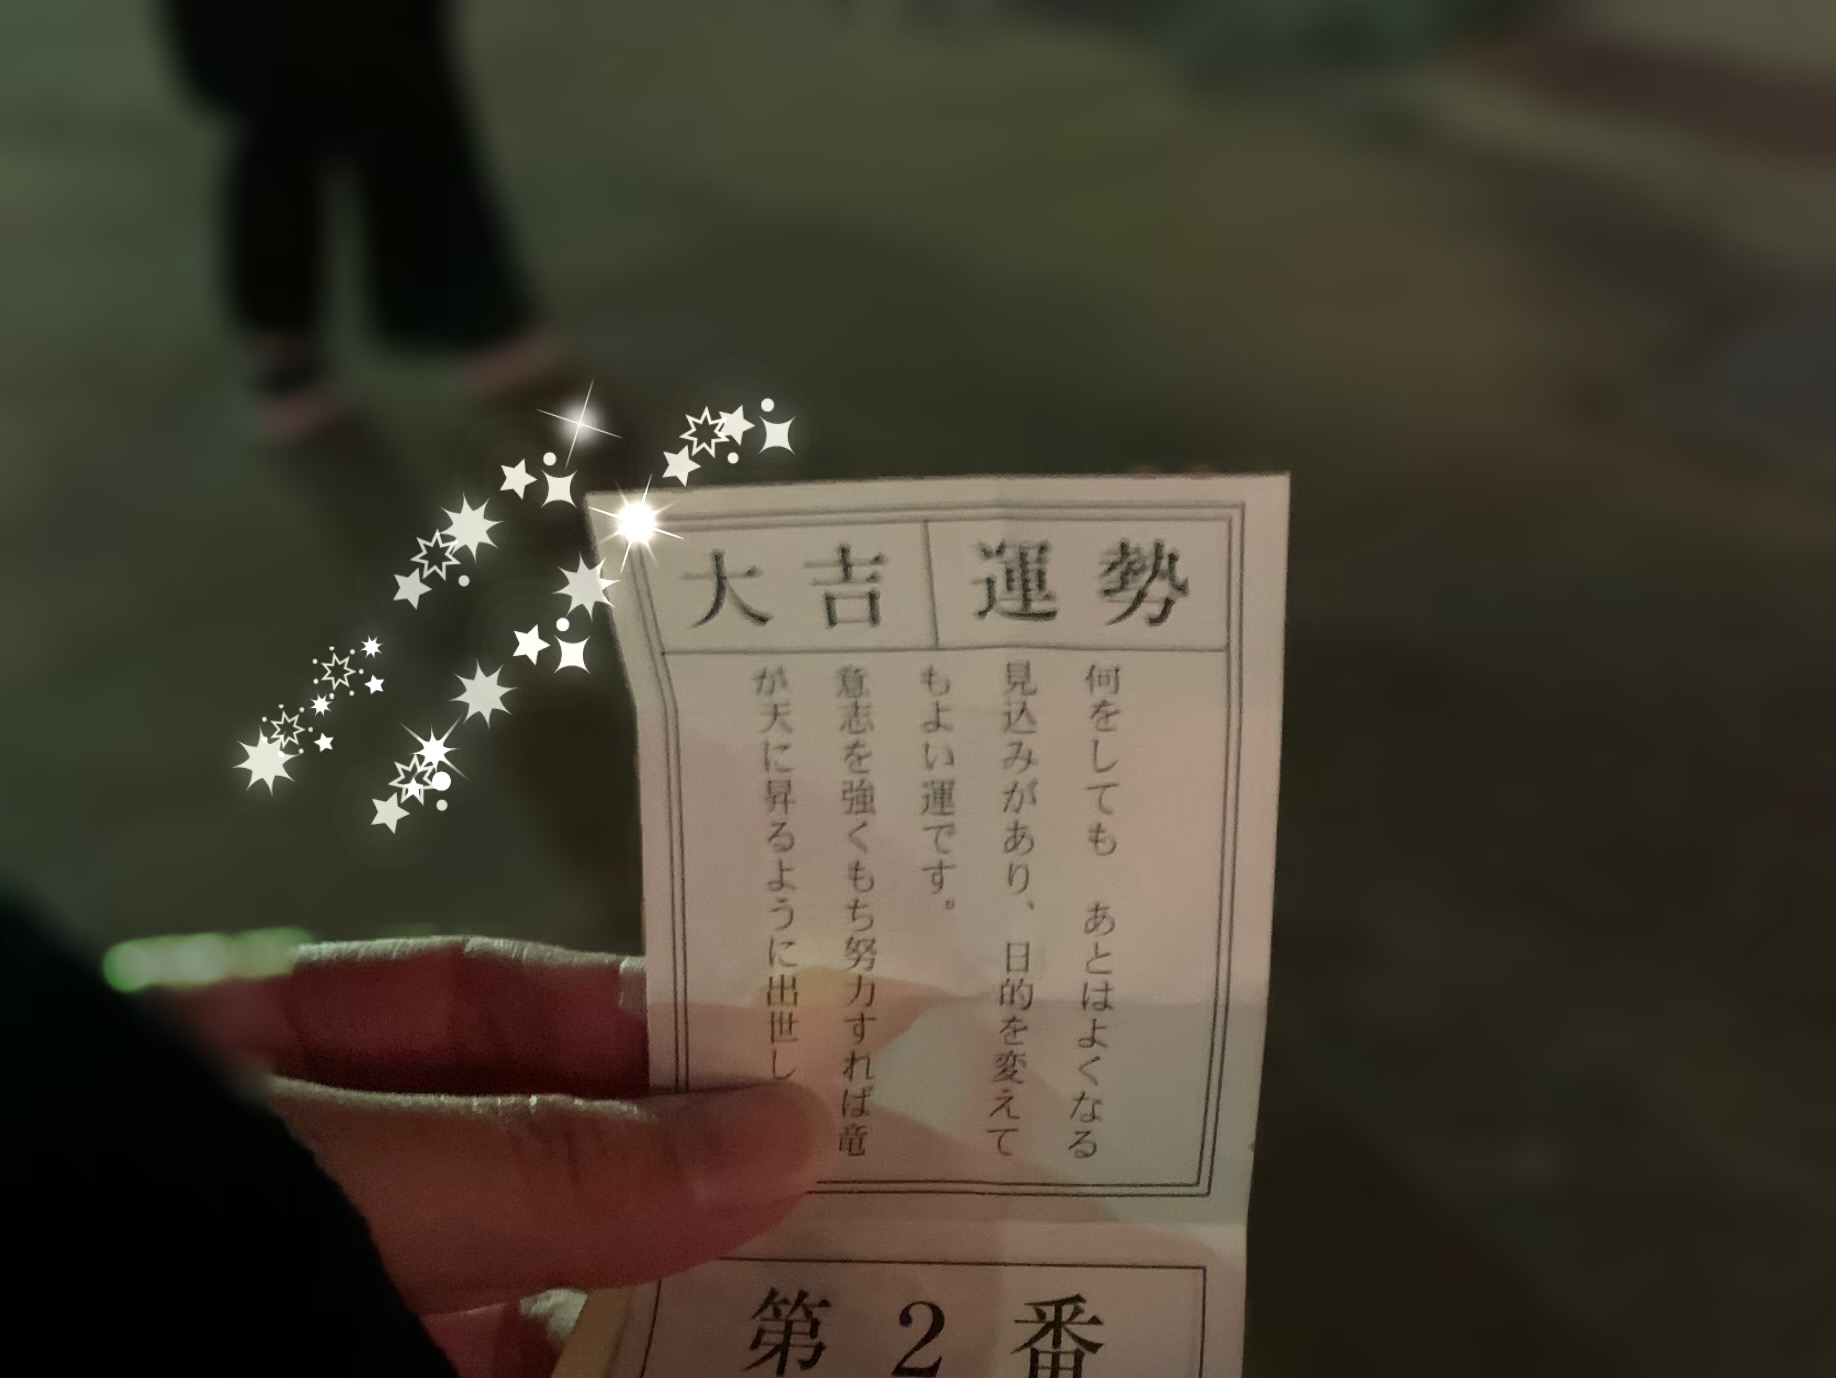 運勢 大吉
何をしても　あとはよくなる
見込みがあり、日的を変えて
もよい運です。
意志を強くもち努力すれば竜
が天に昇るように出世し
第2番